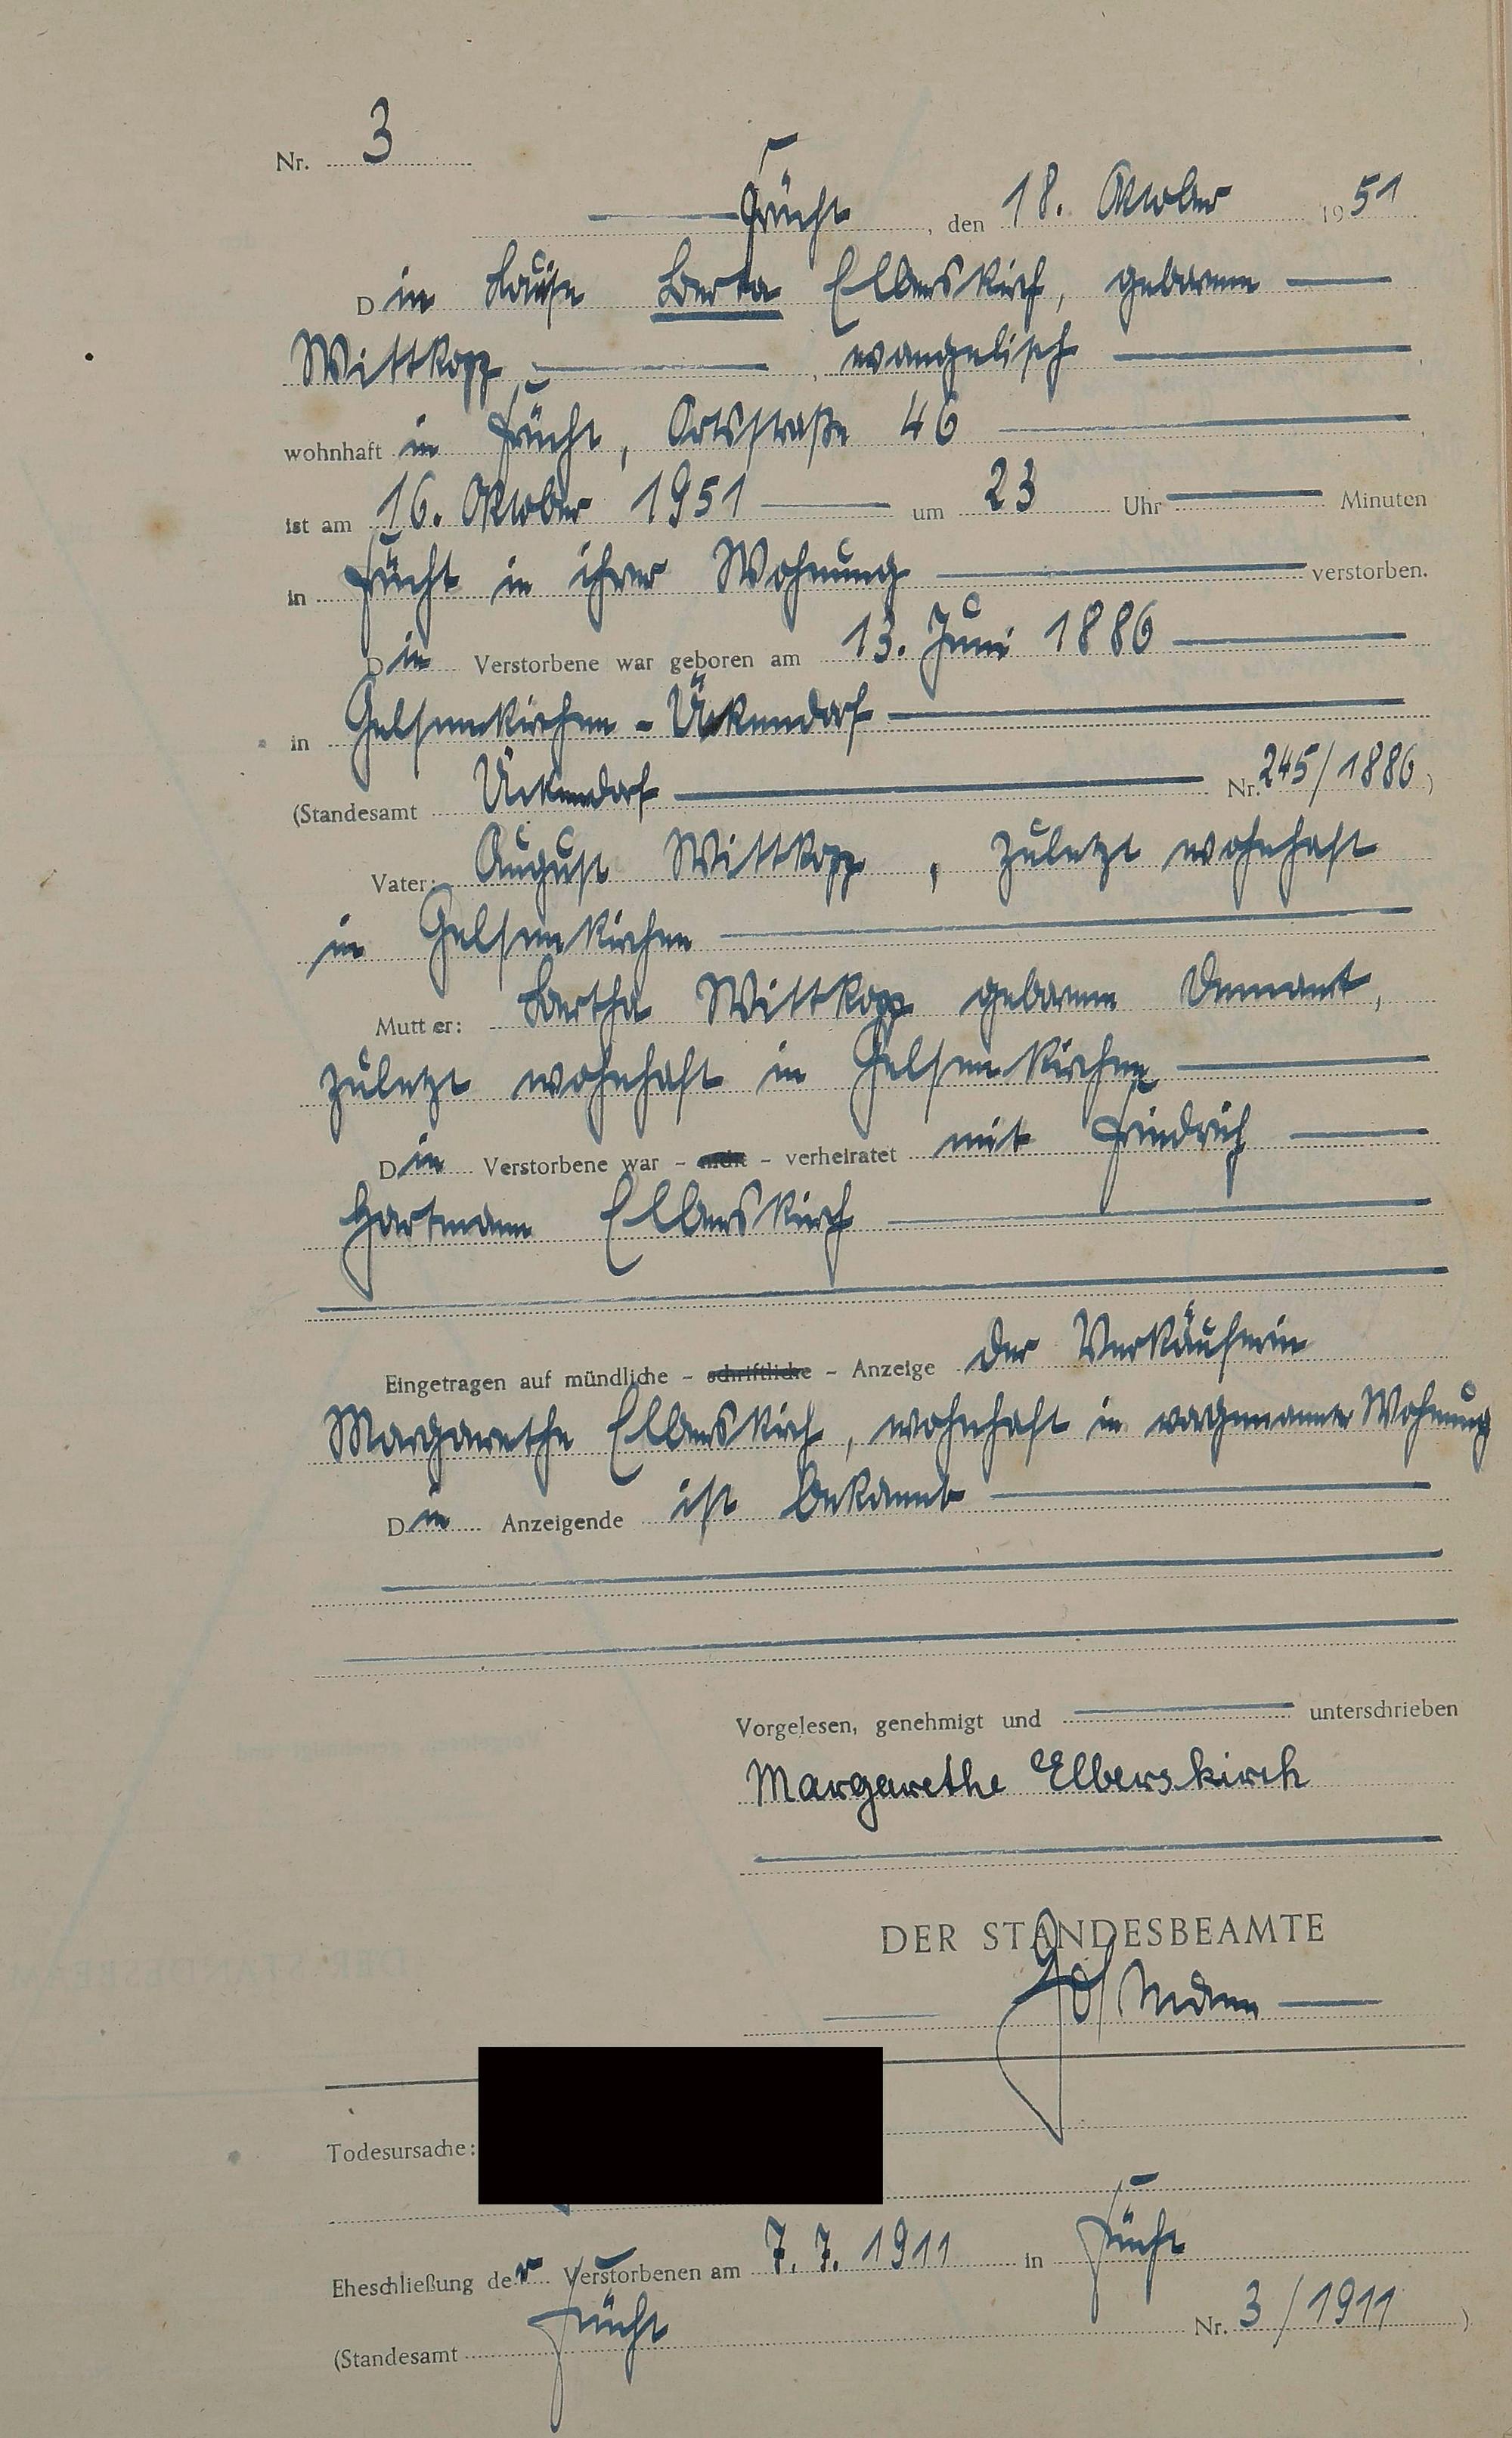 Nr. 3
Frücht, den 18. Oktober 1951
Die Luise Berta Elberskirch, geborene
Wittkopp, evangelisch
wohnhaft in Frücht, Ortsstraße 46
ist am 16. Oktober 1951 um 23 Uhr Minuten
in Frücht in ihrer Wohnung verstorben.
Die Verstorbene war geboren am 13. Juni 1886
in Gelsenkirchen - Ückendorf
(Standesamt Ückendorf Nr. 245/1886)
Vater: August Wittkopp, zuletzt wohnhaft
in Gelsenkirchen
Mutter: Bertha Wittkopp geborene Demant,
zuletzt wohnhaft in Gelsenkirchen
Die Verstorbene war - nicht - verheiratet mit Friedrich
Hartmann Elberskirch
Eingetragen auf mündliche - schriftliche - Anzeige der Verkäuferin
Margarethe Elberskirch, wohnhaft in vorgenannter Wohnung
Die Anzeigende ist bekannt
Vorgelesen, genehmigt und unterschrieben
Margarethe Elberskirch
DER STANDESBEAMTE
Todesursache:
Eheschließung der Verstorbenen am 7.7.1911 in Frücht
(Standesamt Frücht Nr. 3/1911)